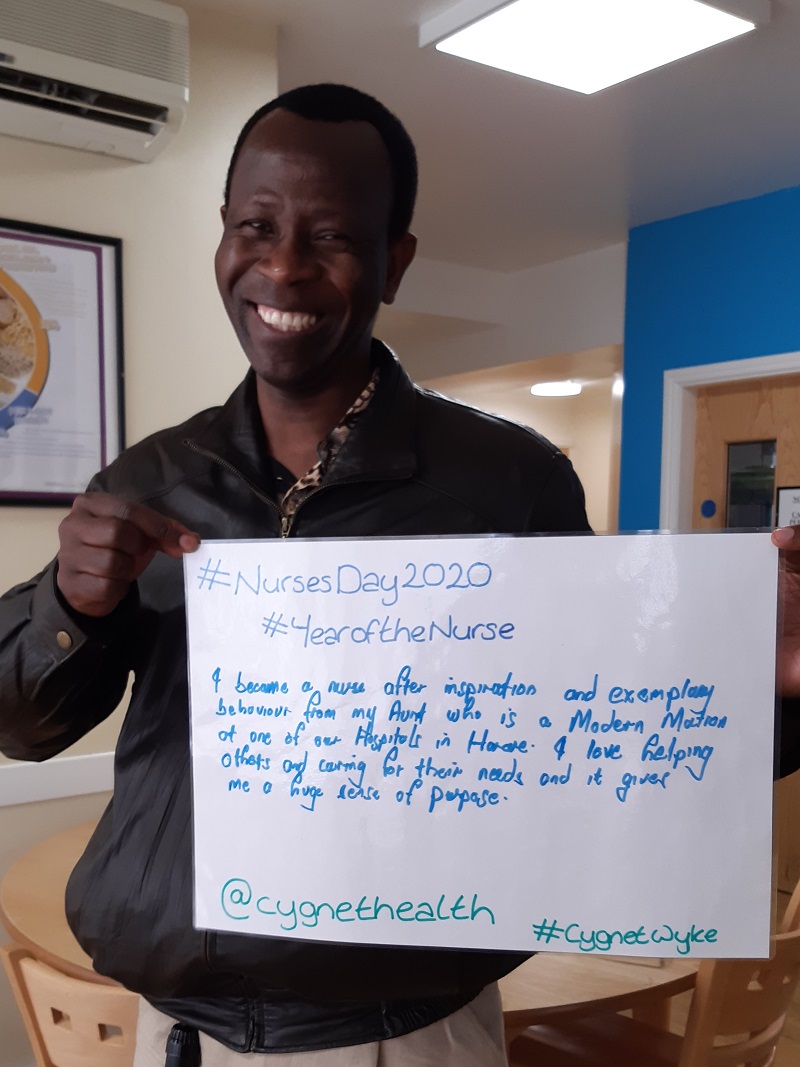 #NursesDay2020
#YearoftheNurse
I became a nurse after inspiration and exemplary
behaviour from my Aunt who is a Modern Matron
at one of our Hospitals in Harare. I love helping
others and caring for their needs and it gives
me a huge sense of purpose.
@cygnethealth
#CygnetWyke